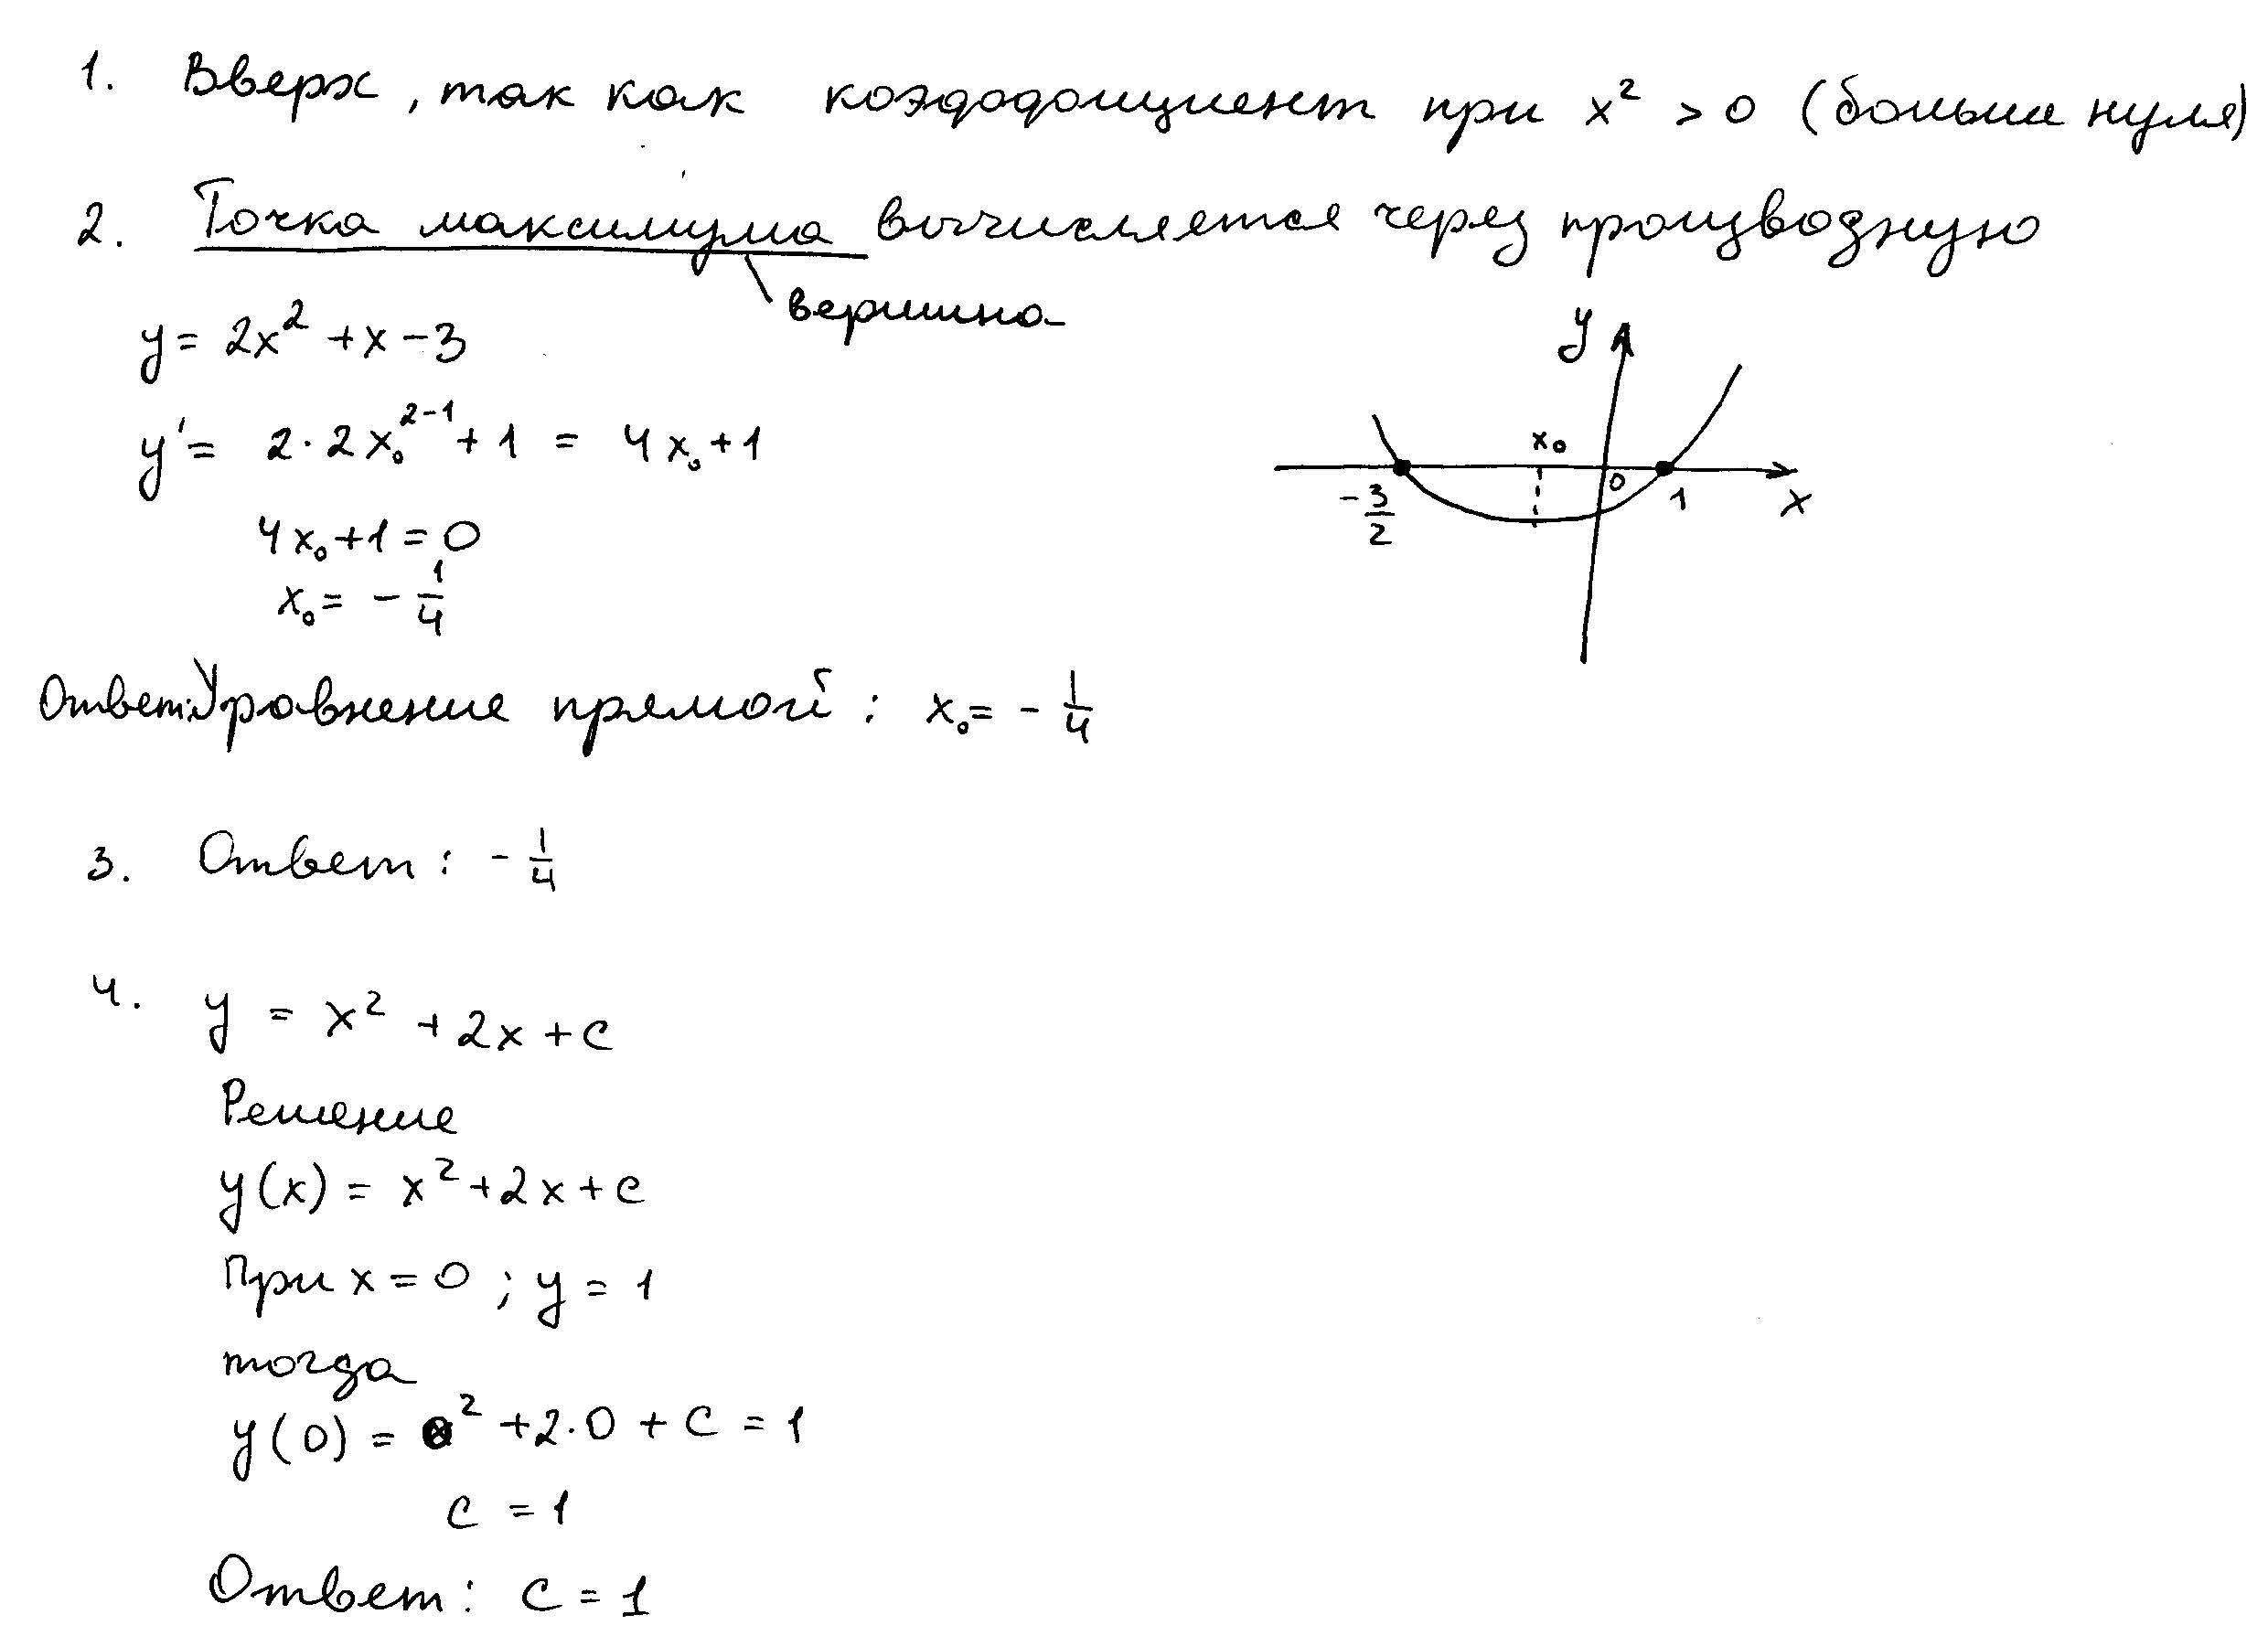 1. Вверх, так как коэффициент при x² > 0 (больше нуля)
2. Точка максимума вычисляется через производную
вершина
y = 2x² + x - 3
y' = 2·2x₀²⁻¹ + 1 = 4x₀ + 1
4x₀ + 1 = 0
x₀ = - 1/4
y
x₀
0
- 3/2
1
x
Ответ: Уравнение прямой: x₀ = - 1/4
3. Ответ: - 1/4
4. y = x² + 2x + c
Решение
y(x) = x² + 2x + c
При x = 0; y = 1
тогда
y(0) = 0² + 2·0 + c = 1
c = 1
Ответ: c = 1